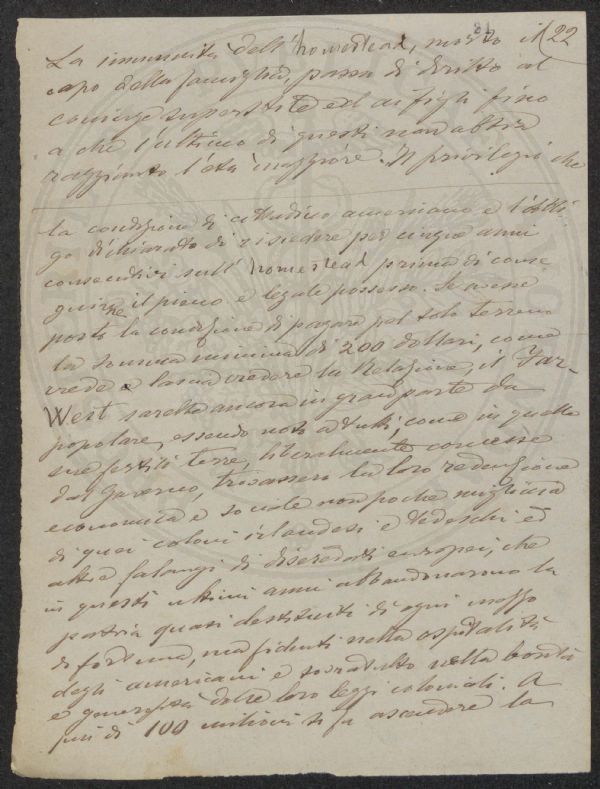 81
22
La immunità dell'homestead, morto il
capo della famiglia, passa di diritto al
coniuge superstite ed ai figli fino
a che l'ultimo di questi non abbia
raggiunto l'età maggiore. Il privilegio che
la condizione di cittadino americano e l'obbli
go dichiarato di risiedere per cinque anni
consecutivi sull'homestead prima di conse
guirne il pieno e legale possesso. Se avesse
posto la condizione di pagare pel solo terreno
la somma minima di 200 dollari, come
crede e lascia credere la Relazione, il Far-
West sarebbe ancora in gran parte da
popolare, essendo noto a tutti, come in quelle
sue fertili terre, liberalmente concesse
dal Governo, trovassero la loro redenzione
economica e sociale non poche migliaia
di quei coloni irlandesi e tedeschi ed
altre falangi di diseredati europei, che
in questi ultimi anni abbandonarono la
patria quasi destituiti di ogni mezzo
di fortuna, ma fidenti nella ospitalità
degli americani e sopratutto nella bontà
e generosità delle loro leggi coloniali. A
più di 100 milioni si fa ascendere la